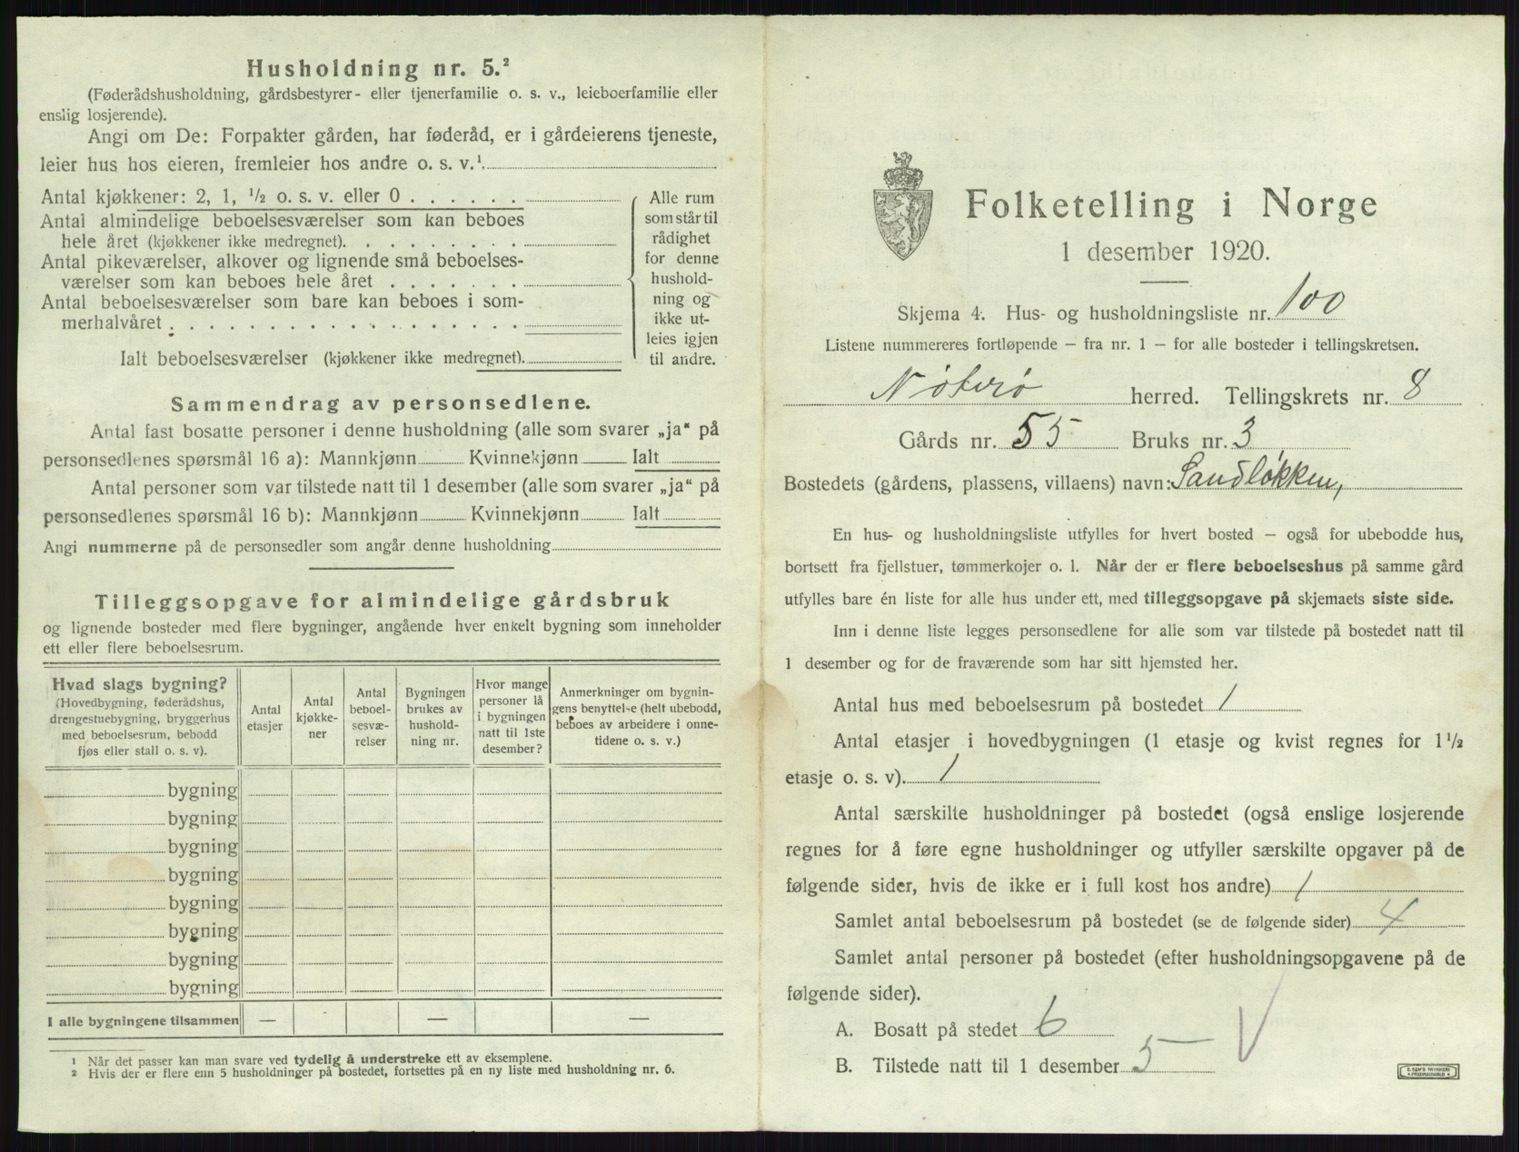 Husholdning nr. 5.²
(Føderådshusholdning, gårdsbestyrer- eller tjenerfamilie o. s. v., leieboerfamilie eller
enslig losjerende).
Angi om De: Forpakter gården, har føderåd, er i gårdeierens tjeneste,
leier hus hos eieren, fremleier hos andre o. s. v.¹
Antal kjøkkener: 2, 1, ½ o. s. v. eller 0 . . . . . .
Antal almindelige beboelsesværelser som kan beboes
hele året (kjøkkener ikke medregnet). . . . . . . . .
Antal pikeværelser, alkover og lignende små beboelses-
værelser som kan beboes hele året . . . . . . .
Antal beboelsesværelser som bare kan beboes i som-
merhalvåret . . . . . . . . . . . . . . . . .
Ialt beboelsesværelser (kjøkkener ikke medregnet).
Alle rum
som står til
rådighet
for denne
hushold-
ning og
ikke ut-
leies igjen
til andre.
Sammendrag av personsedlene.
Antal fast bosatte personer i denne husholdning (alle som svarer „ja“ på
personsedlenes spørsmål 16 a): Mannkjønn Kvinnekjønn Ialt
Antal personer som var tilstede natt til 1 desember (alle som svarer „ja“ på
personsedlenes spørsmål 16 b): Mannkjønn Kvinnekjønn Ialt
Angi nummerne på de personsedler som angår denne husholdning
Tilleggsopgave for almindelige gårdsbruk
og lignende bosteder med flere bygninger, angående hver enkelt bygning som inneholder
ett eller flere beboelsesrum.
Hvad slags bygning?
(Hovedbygning, føderådshus,
drengestuebygning, bryggerhus
med beboelsesrum, bebodd
fjøs eller stall o. s. v).
Antal
etasjer
Antal
kjøkke-
ner
Antal
beboel-
sesvæ-
relser
Bygningen
brukes av
hushold-
ning nr.
Hvor mange
personer lå
i bygningen
natt til 1ste
desember?
Anmerkninger om bygnin-
gens benyttelse (helt ubebodd,
beboes av arbeidere i onne-
tidene o. s. v.)
bygning
bygning
bygning
bygning
bygning
bygning
bygning
bygning
I alle bygningene tilsammen — — —
¹ Når det passer kan man svare ved tydelig å understreke ett av eksemplene.
² Hvis der er flere enn 5 husholdninger på bostedet, fortsettes på en ny liste med husholdning nr. 6.
Folketelling i Norge
1 desember 1920.
Skjema 4. Hus- og husholdningsliste nr. 100
Listene nummereres fortløpende — fra nr. 1 — for alle bosteder i tellingskretsen.
Nøterø herred. Tellingskrets nr. 8
Gårds nr. 55 Bruks nr. 3
Bostedets (gårdens, plassens, villaens) navn: Sandløkken,
En hus- og husholdningsliste utfylles for hvert bosted — også for ubebodde hus,
bortsett fra fjellstuer, tømmerkojer o. l. Når der er flere beboelseshus på samme gård
utfylles bare én liste for alle hus under ett, med tilleggsopgave på skjemaets siste side.
Inn i denne liste legges personsedlene for alle som var tilstede på bostedet natt til
1 desember og for de fraværende som har sitt hjemsted her.
Antal hus med beboelsesrum på bostedet 1
Antal etasjer i hovedbygningen (1 etasje og kvist regnes for 1½
etasje o. s. v). 1
Antal særskilte husholdninger på bostedet (også enslige losjerende
regnes for å føre egne husholdninger og utfyller særskilte opgaver på de
følgende sider, hvis de ikke er i full kost hos andre) 1
Samlet antal beboelsesrum på bostedet (se de følgende sider) 4
Samlet antal personer på bostedet (efter husholdningsopgavene på de
følgende sider).
A. Bosatt på stedet 6
B. Tilstede natt til 1 desember 5